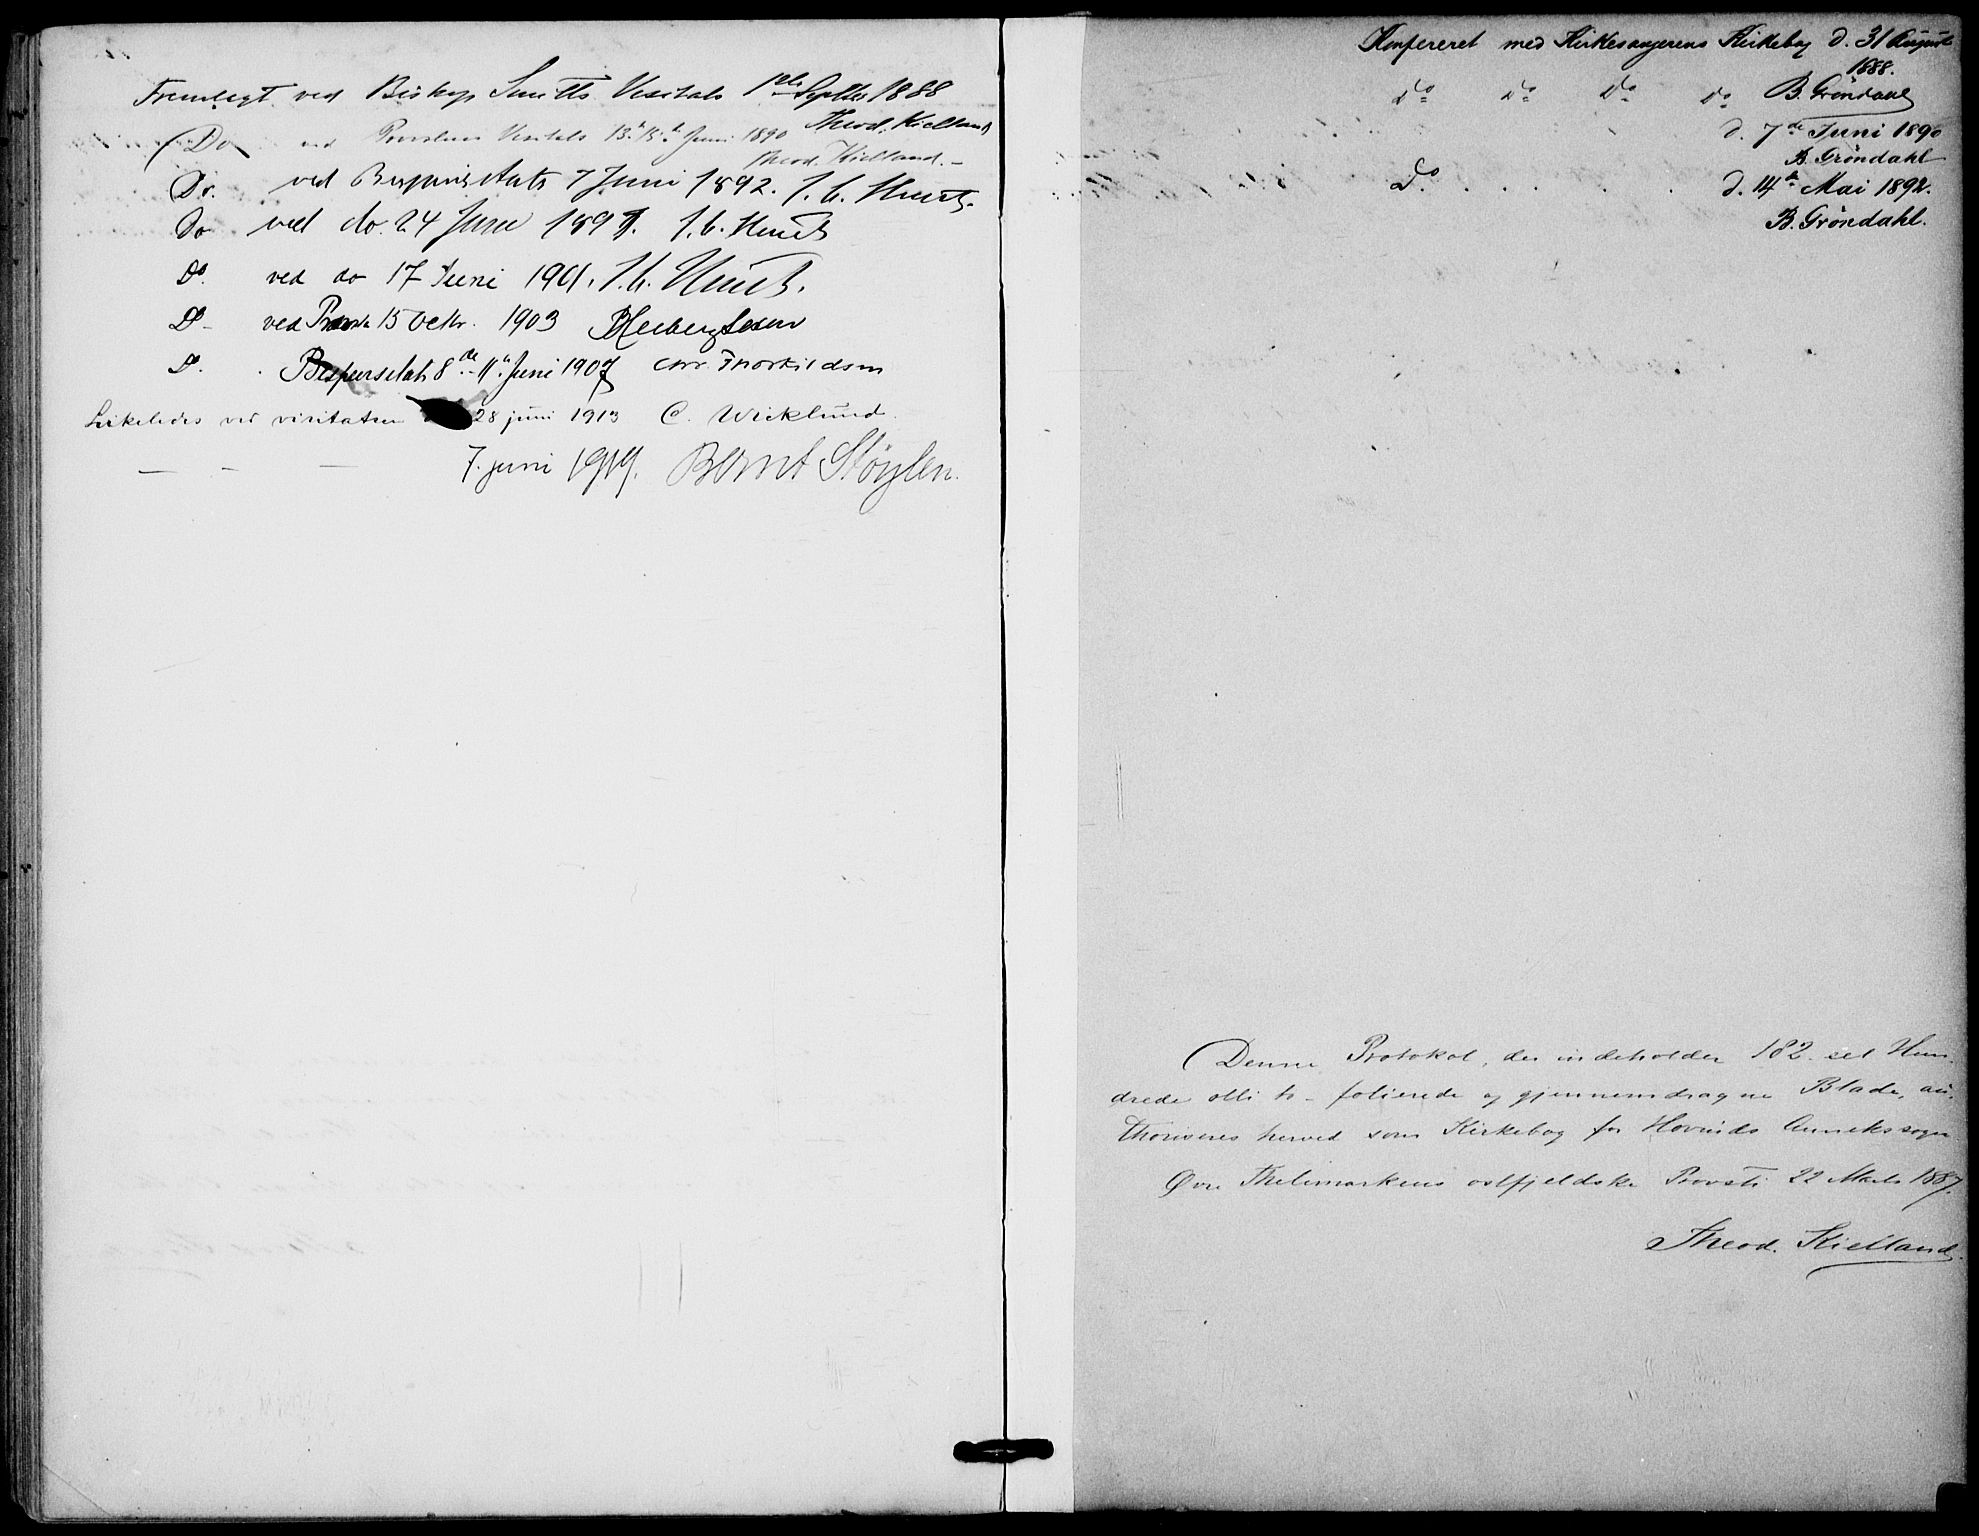 Fremlagt ved Biskop Smitts Visitats 1ste Septbr 1888
Theod. Kielland
Do ved Provstens Visitats 13de 15de Juni 1890
Theod. Kielland.
Do. ved Bispevisitats 7 Juni 1892. J. C. Heuch.
Do ved do. 24 Juni 1897. J. C. Heuch
Do. ved do 17 Juni 1901. J. C. Heuch.
Do - ved 15 Octbr. 1903
Do. Bispevisitats 8de - 11te Juni 1907 Chr. Thorkildsen
Likeledes ved visitatsen 28 juni 1913 C. Wicklund.
— — — 7. juni 1919. Bernt Støylen.
Konfereret med Kirkesangerens Kirkebog d. 31 August
1888.
Do Do Do Do B. Grøndahl
d. 7de Juni 1890
B. Grøndahl
Do . . . . . d. 14de Mai 1892.
B. Grøndahl.
Denne Protokol, der indeholder 182 - eet Hun-
drede otti to - folierede og gjennemdragne Blade, au-
thoriseres herved som Kirkebog for Hovinds Annekssogn
Øvre Thelemarkens østfjeldske Provsti 22 Marts 1887.
Theod. Kielland.